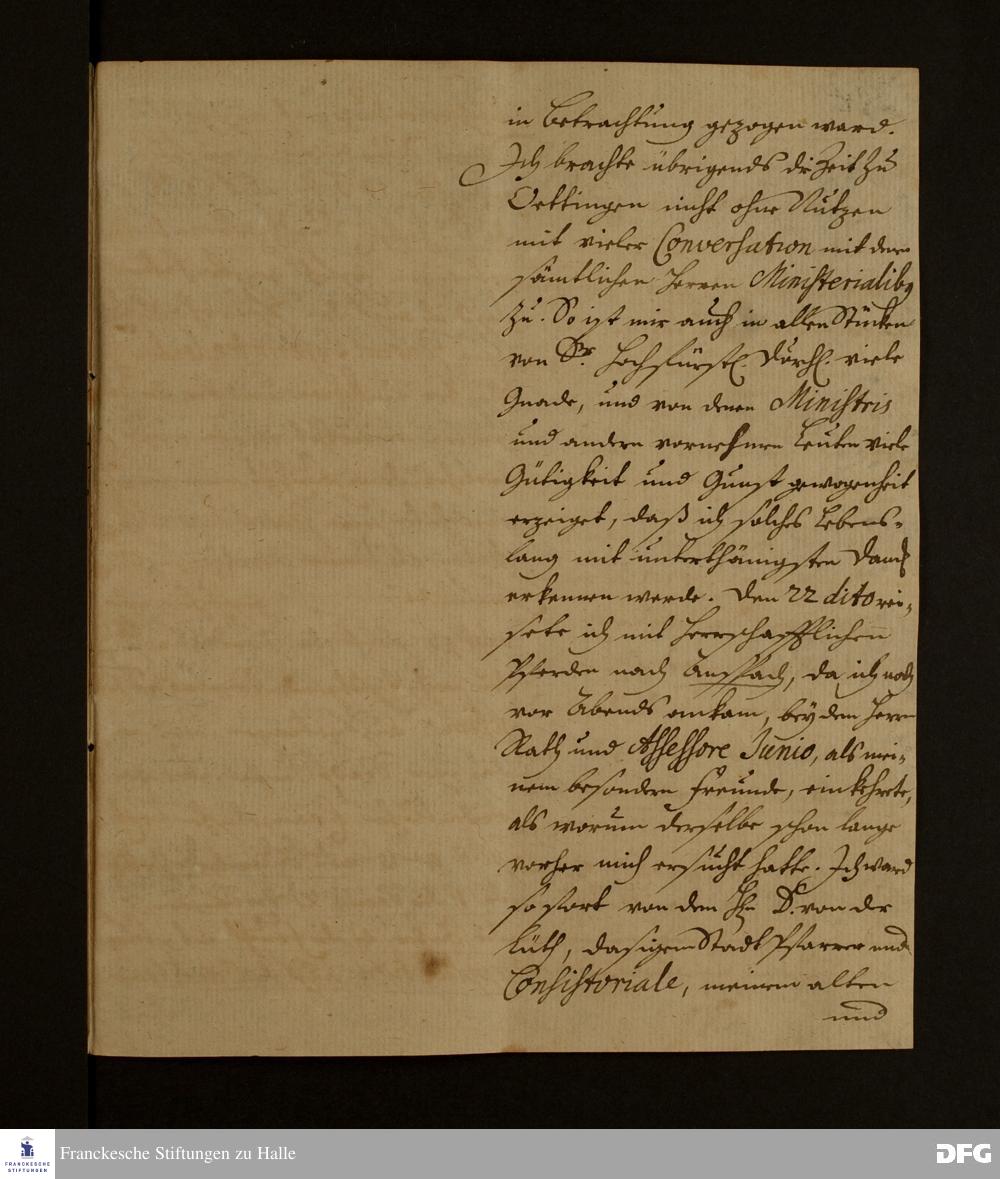 in Betrachtung gezogen ward.
Ich brachte übrigends die Zeit zu
Oettingen nicht ohne Nutzen
mit vieler Conversation mit denen
sämtlichen Herren Ministerialibg
zu. So ist mir auch in allen Stücken
von Sr. Hochfürstl. Durchl. viele
Gnade, und von denen Ministris
und andern vornehmen Leuten viele
Gütigkeit und Gunst gewogenheit
erzeiget, daß ich solches Lebens-
lang mit unterthänigsten Danck
erkennen werde. Den 22 dito rei-
sete ich mit Herrschafftlichen
Pferden nach Anspach, da ich noch
vor Abends ankam, bey dem Herrn
Rath und Assessore Junio, als mei-
nem besondern Freunde, einkehrete,
als worum derselbe schon lange
vorher mich ersucht hatte. Ich ward
so fort von dem Hn D. von der
Lüth, dasigem Stadt Pfarrer und
Consistoriale, meinem alten
und
Franckesche Stiftungen zu Halle
FRANCKESCHE
STIFTUNGEN
DFG